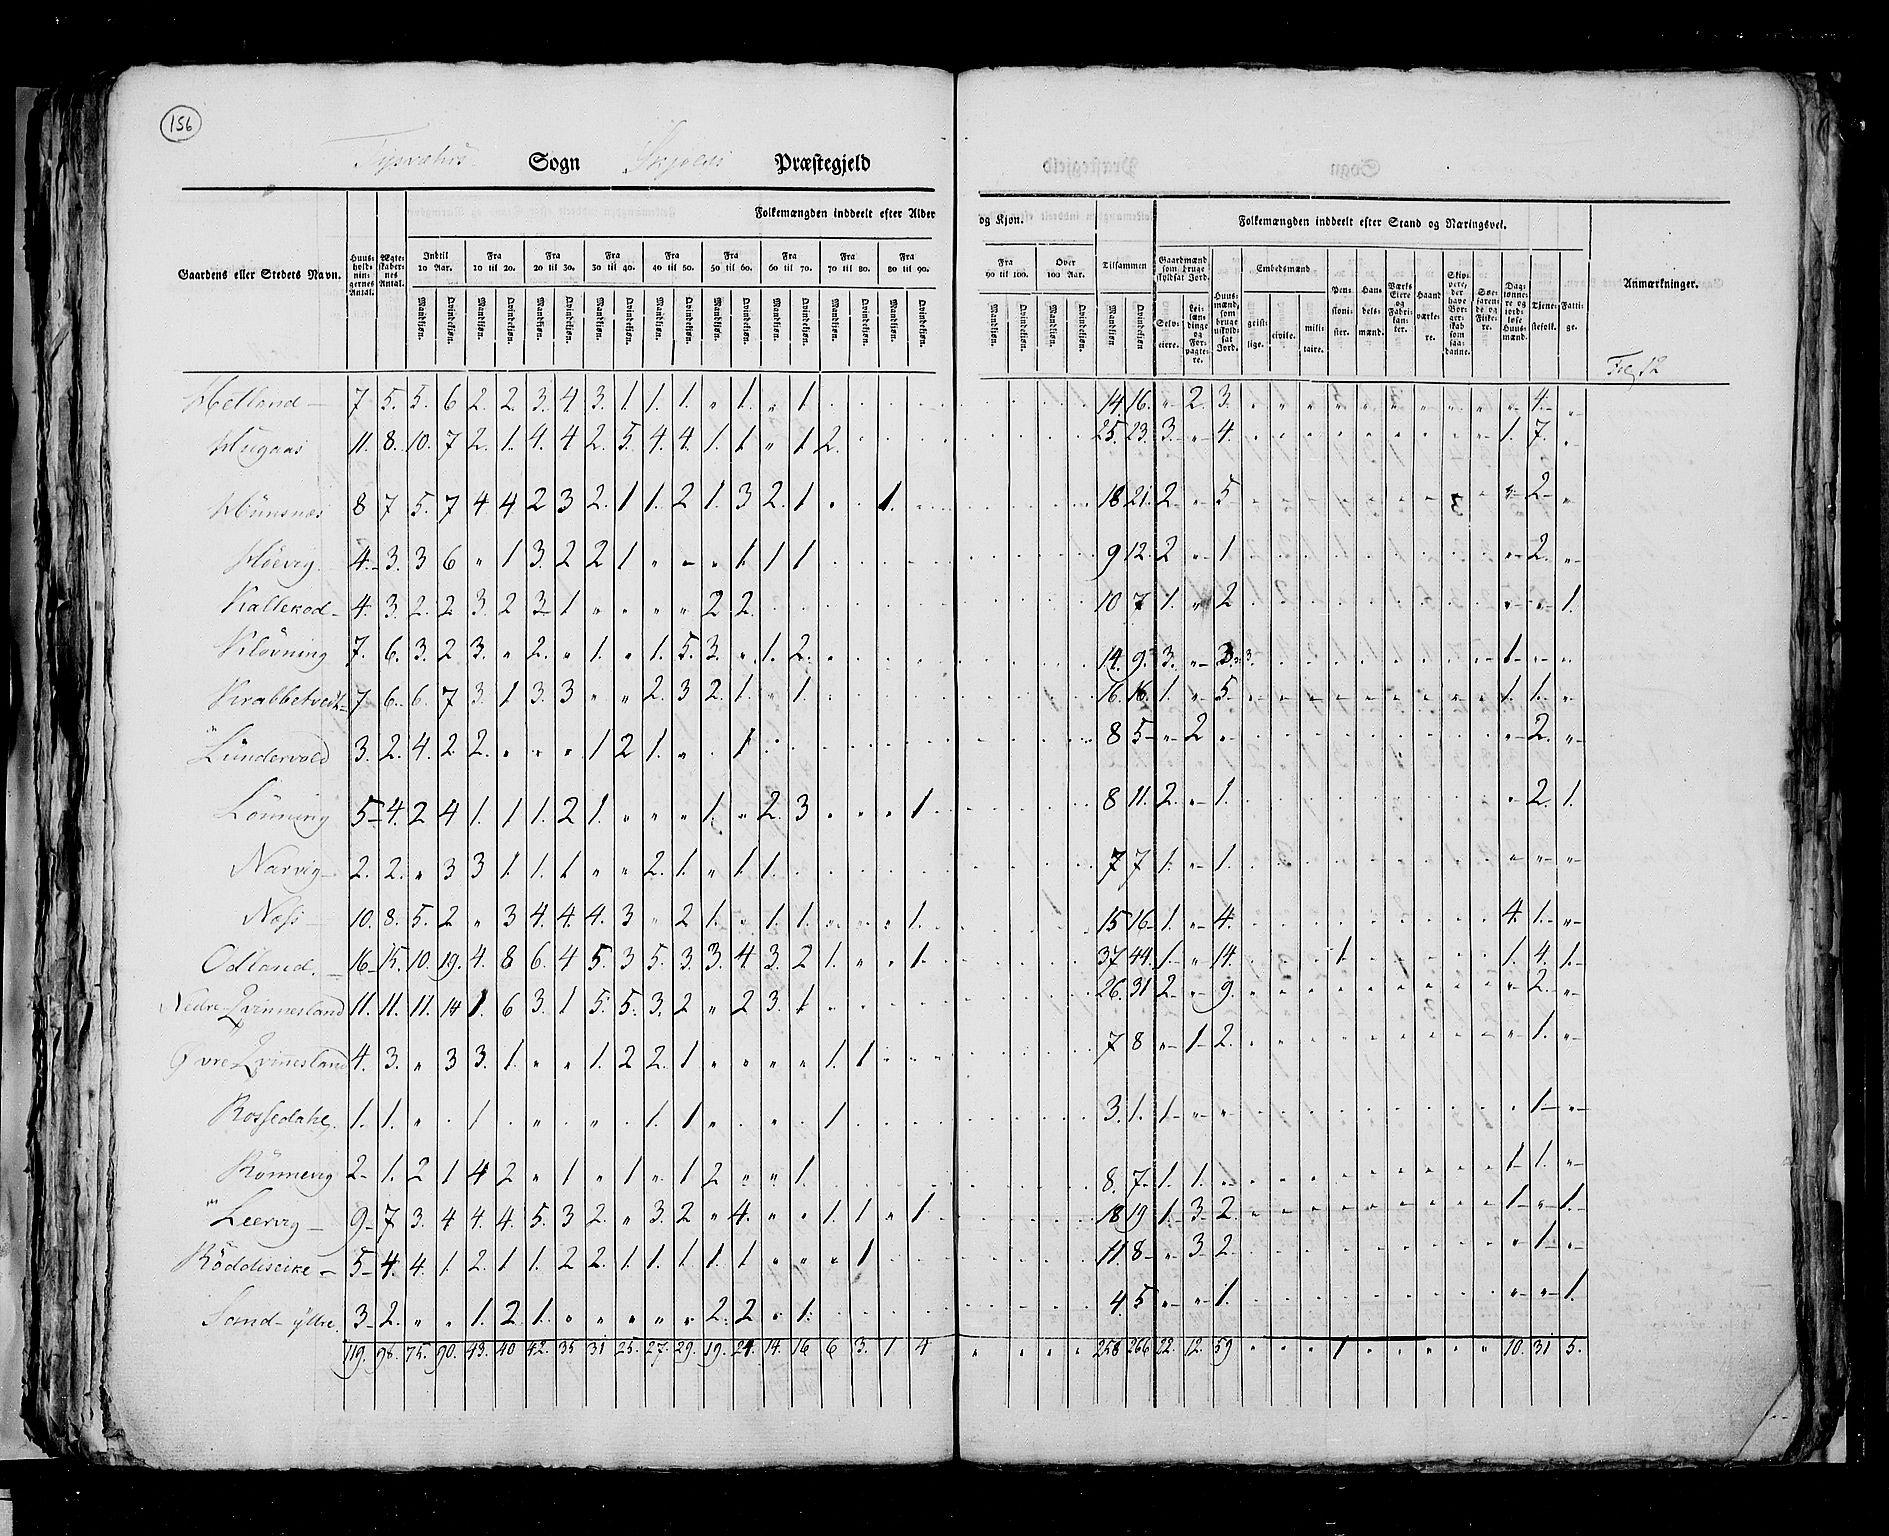 156
Tysvehrs Sogn Skjolds Præstegjeld
Gaardens eller Stedets Navn.
Huus-holdnin-gernes Antal.
Ægte-skaber-nes Antal.
Folkemængden inddeelt efter Alder og Kjøn.
Indtil 10 Aar. Fra 10 til 20. Fra 20 til 30. Fra 30 til 40. Fra 40 til 50. Fra 50 til 60. Fra 60 til 70. Fra 70 til 80. Fra 80 til 90. Fra 90 til 100. Over 100 Aar. Tilsammen
Mandkjøn. Qvindekjøn.
Folkemængden inddeelt efter Stand og Næringsvei.
Gaardmænd som bruge skyldsat Jord.
Selv-eiere. Lei-lændinge og For-pagtere.
Huus-mænd, som bruge uskyldsat Jord.
Embedsmænd
geist-lige. civile. mili-taire.
Pen-sioni-ster. Han-dels-mænd. Værks Eiere og Fabri-kanter. Haand værke-re. Skip-pere, der have Bor-gerskab som saa-danne. Søe-farende og Fiske-re. Dag-lønne-re og jord-løse Huus-mænd. Tjene-stefolk. Fatti-ge.
Anmærkninger.
Helland 7 5. 5. 6 2. 2. 3. 4 3. 1. 1. 1. " 1. " 1 14. 16. " 2. 3. 4. "
Hugaas 11. 8. 10. 7 2. 1. 4. 4 2. 5. 4. 4. 1. 1 " 1 2. 25. 23. 3. " 4. 1. 7. "
Hünsnæs 8 7 5. 7 4 4 2 3 2. 1 1. 2 1. 3 2. 1 " " 1. 18 21. 2 " 5 3 " 2 "
Høevig. 4. 3. 3 6 " 1 3. 2 2 1 " " " 1 1 1 9 12. 2 " 1 " 2. "
Kallekod 4. 3. 2. 2 3. 2 3 1 " " " " 2 2. 10 7 1. " 2 " " 1.
Kløvning 7. 6. 3. 2 3. " 2. " 1. " 1. 5. 3. " 1. 2. 14. 9. 3. " 3 1 " "
Krabbetvedt 7 6. 6. 7 3. 1 3. 3 " " 2. 3 2. 1. " 1. 16. 16. 1. " 5. 1. 1. "
Lündervold 3. 2. 4. 2 2. " " " 1 2 1. " " 1 8 5 " 2 " " 2. "
Lönning 5 4. 2 4 1. 1 1. 2 1. " " " 1. " 2. 3 " " " 1 8 11. 2. " 1. " 2. 1.
Narvig 2. 2. " 3 3 1 1. 1 " " 2. 1. " 1 1. 7 7 1. " 1. " " "
Næss 10. 8. 5. 2 " 3 4. 4. 4. 3 " 2 1. " 1. 1. " " " 1. 15 16 1. " 4. 4. 1. "
Odland. 16 15. 10. 19. 4. 8 6. 4 5. 3 5. 3. 3. 4 3. 2 1. " " 1. 37 44. 1 " 14. 1 1. 4. 1.
Nedre Qvinnesland 11. 11. 11. 14 1. 6 3. 1 5. 5. 3. 2 " 2 3. 1 26. 31 2 " 9. " 2. "
Øvre Qvinnesland 4. 3. " 3 3. 1. " " 1. 2 2. 1 " " " " 1. 1 7 8 " 1 2. " 1. "
Rossedahl. 1. 1. " " 1 " " " " " 1. 1 " " " " 1 3. 1. 1 " " 1 "
Rönnevig 2 1. 2 1 4 2 " 1 " 1 " 1 2 " " 1. 8. 7 1. 1. " 1 1. "
Leervig 9 7 3. 4 4. 4. 5. 3 2. " 3. 2 " 4. " " 1. 1 " 1 18 19 1. 3 2. 1 " 1.
Röddiseike 5 4. 4. 1. 2. 1 1. 2 2. 1. 1. 1. 1. 1 " " " 1 11. 8 " 3 2. " 1 "
Sand yttre. 3 2. " " 1. 2 1. " " " " " 2. 2 " 1. 4 5 " " 1. " " 1.
119. 98. 75. 90. 43. 40 42. 35 31 25. 27. 29. 19. 24. 14. 16 6 3. 1 4 " " " " 258 266 22. 12. 59 " " " 1 " " " " " 10. 31 5.